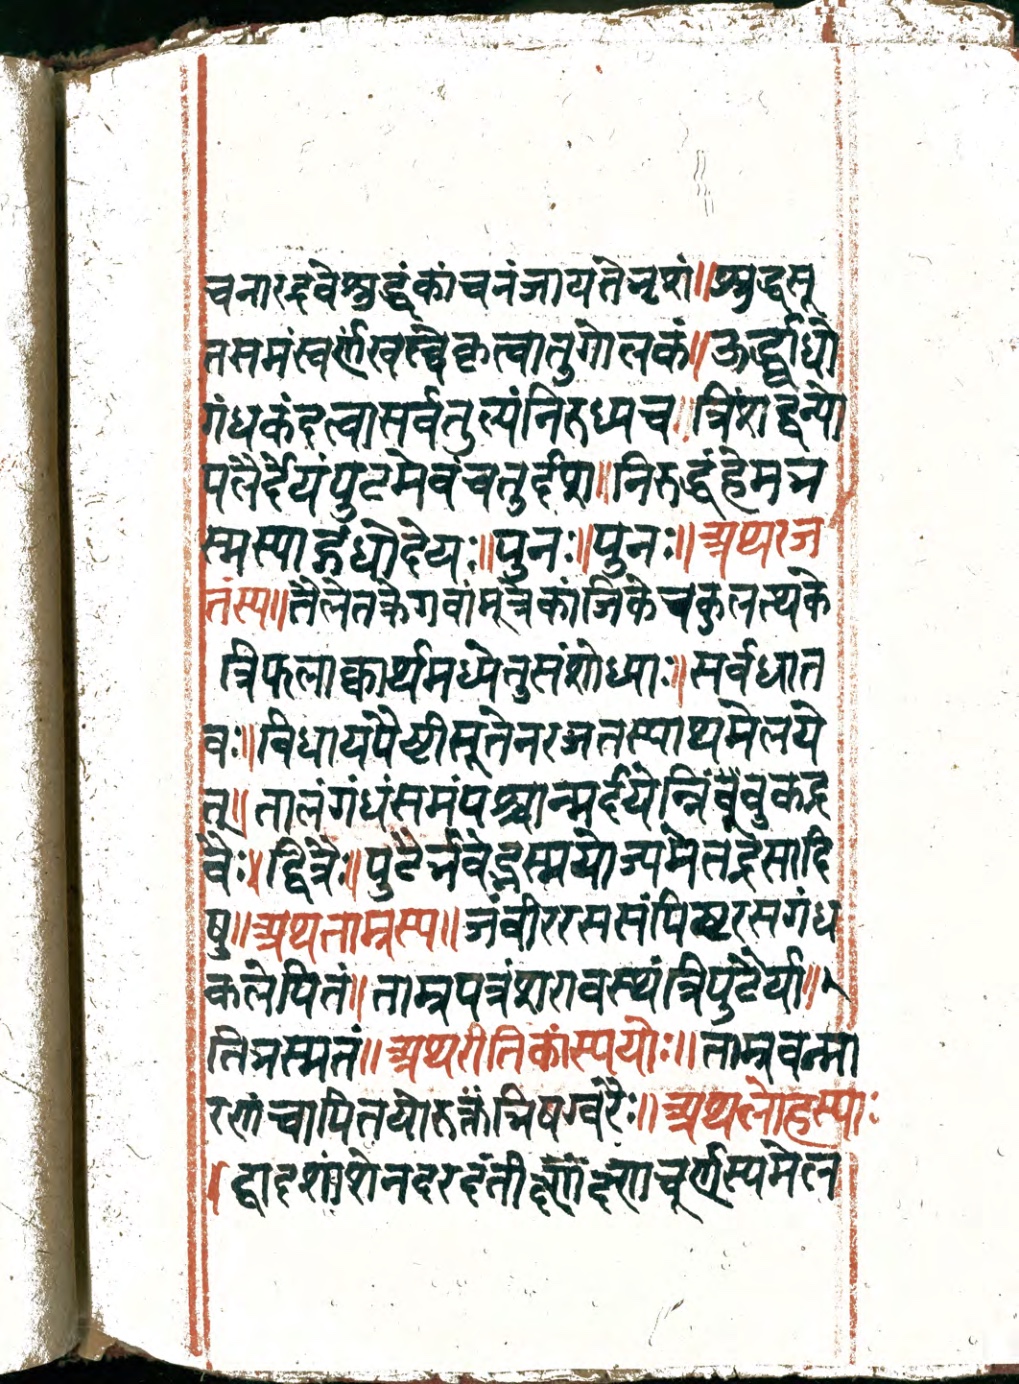 चनारद्रवेशुद्धंकांचनंजायतेनृशं॥शुद्धसू
तसमंस्वर्णंखल्वेकृत्वातुगोलकं॥ऊर्द्ध्वाधो
गंधकंदत्वासर्वतुल्यंनिरुध्यच॥त्रिंशद्वन्यो
पलैर्देयंपुटमेवंचतुर्दश॥निरुद्धंहेमभ
स्मस्याद्गंधोदेयः॥पुनः॥पुनः॥अथरज
तस्य॥तैलेतक्रेगवांमूत्रेकांजिकेचकुलत्थके
त्रिफलाक्वाथमध्येतुसंशोध्याः॥सर्वधात
वः॥विधायपेष्टीसूतेनरजतस्याथमेलये
त्॥तालंगंधंसमंपश्चान्मर्दयेन्निंबुकद्र
वैः॥द्वित्रैः॥पुटैर्भवेद्भस्मयोज्यमेतद्रसादि
षु॥अथताम्रस्य॥जंवीररससंपिष्टरसगंध
कलेपितं॥ताम्रपत्रंशरावस्थंत्रिपुटैर्या॥
तिभस्मतं॥अथरीतिकांस्ययोः॥ताम्रवन्मा
रणंचापितयोरुक्तंभिषग्वरैः॥अथलोहस्याः
॥द्वादशांशेनदरदंतीक्ष्णंक्ष्णचूर्णस्यमेल